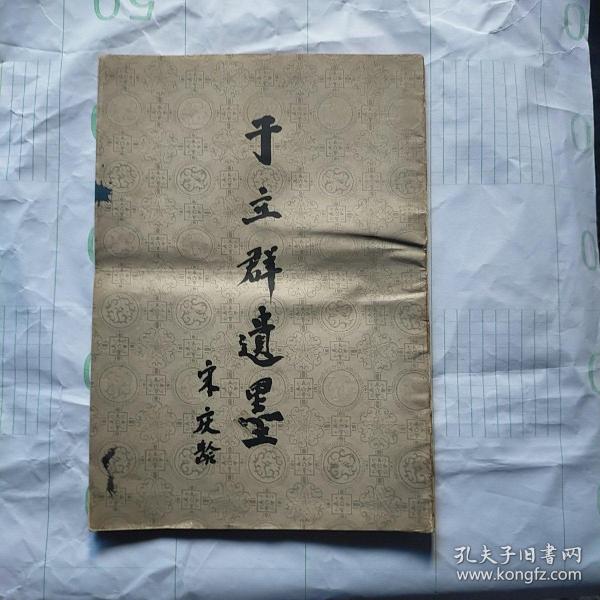 于立群遺墨
宋庆龄
孔夫子旧书网
www.kongfz.com
50
0